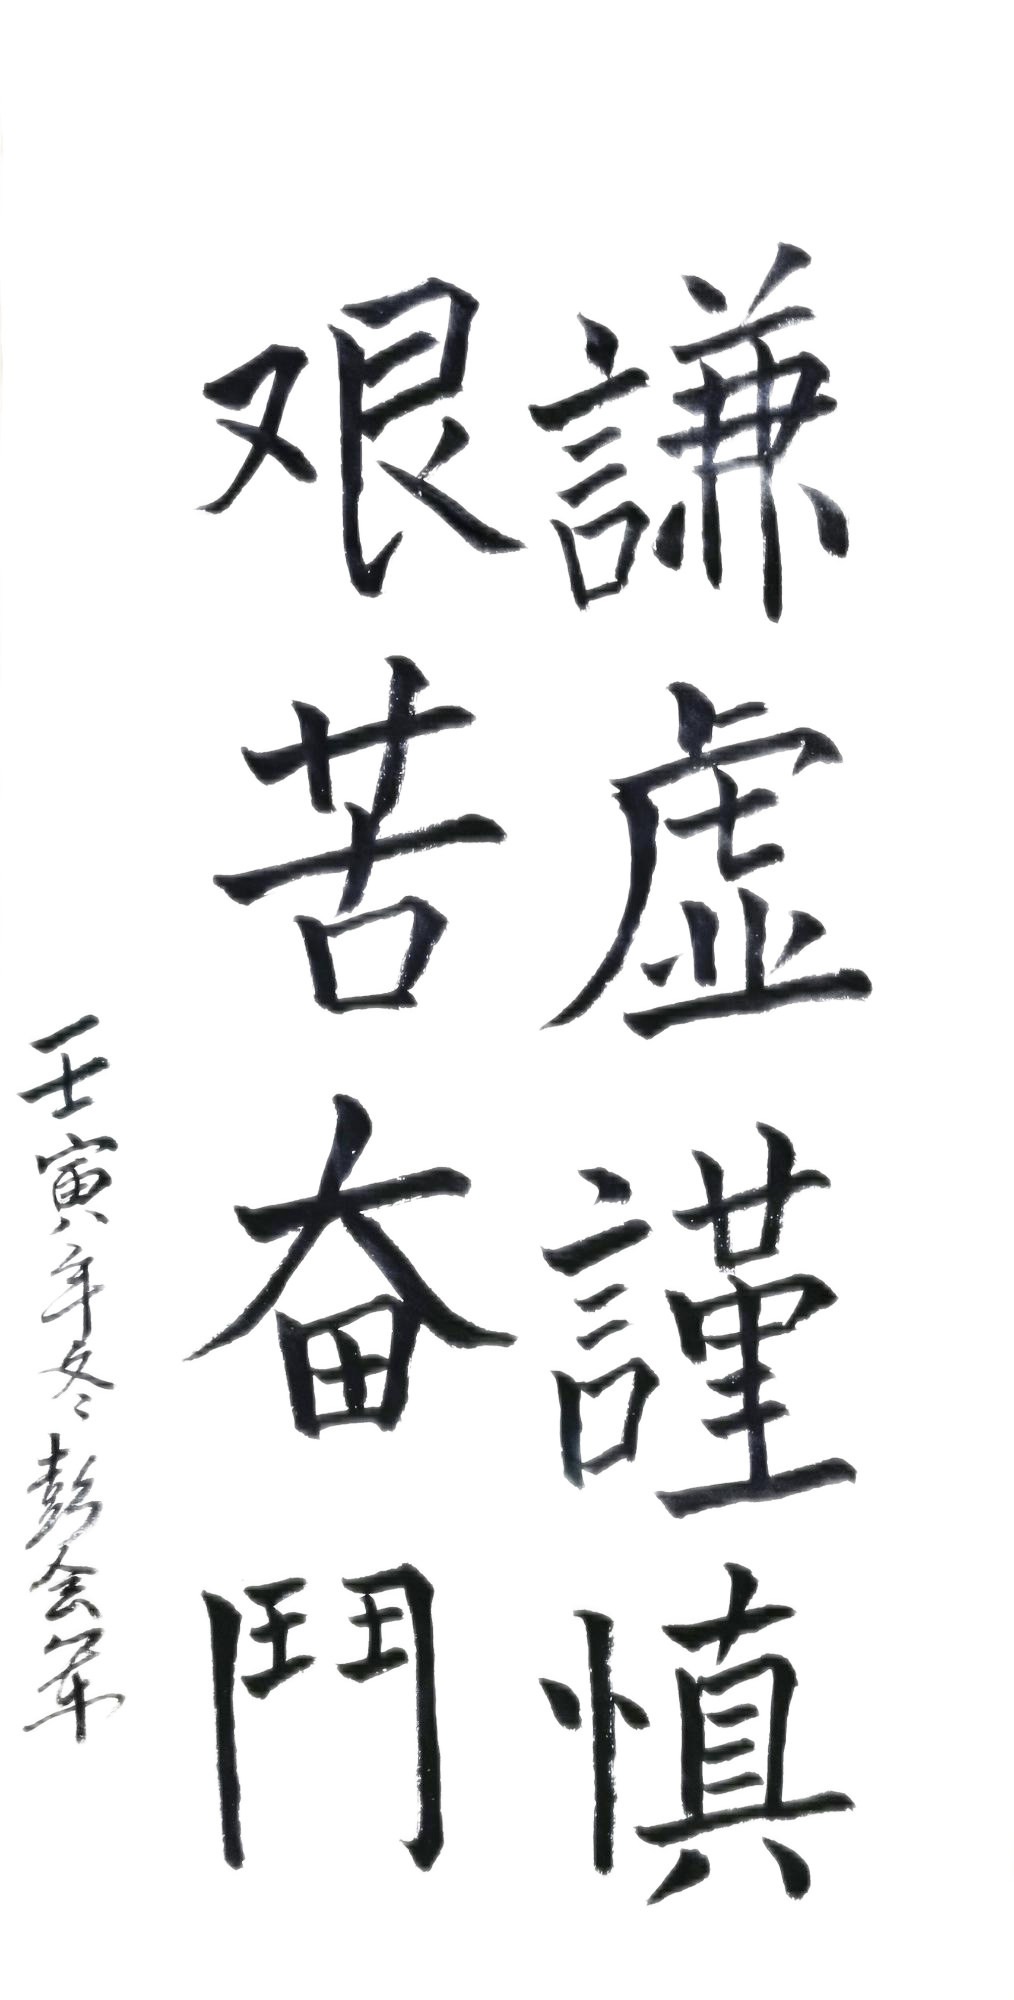 謙虚謹慎
艰苦奋鬥
壬寅年冬彭会军